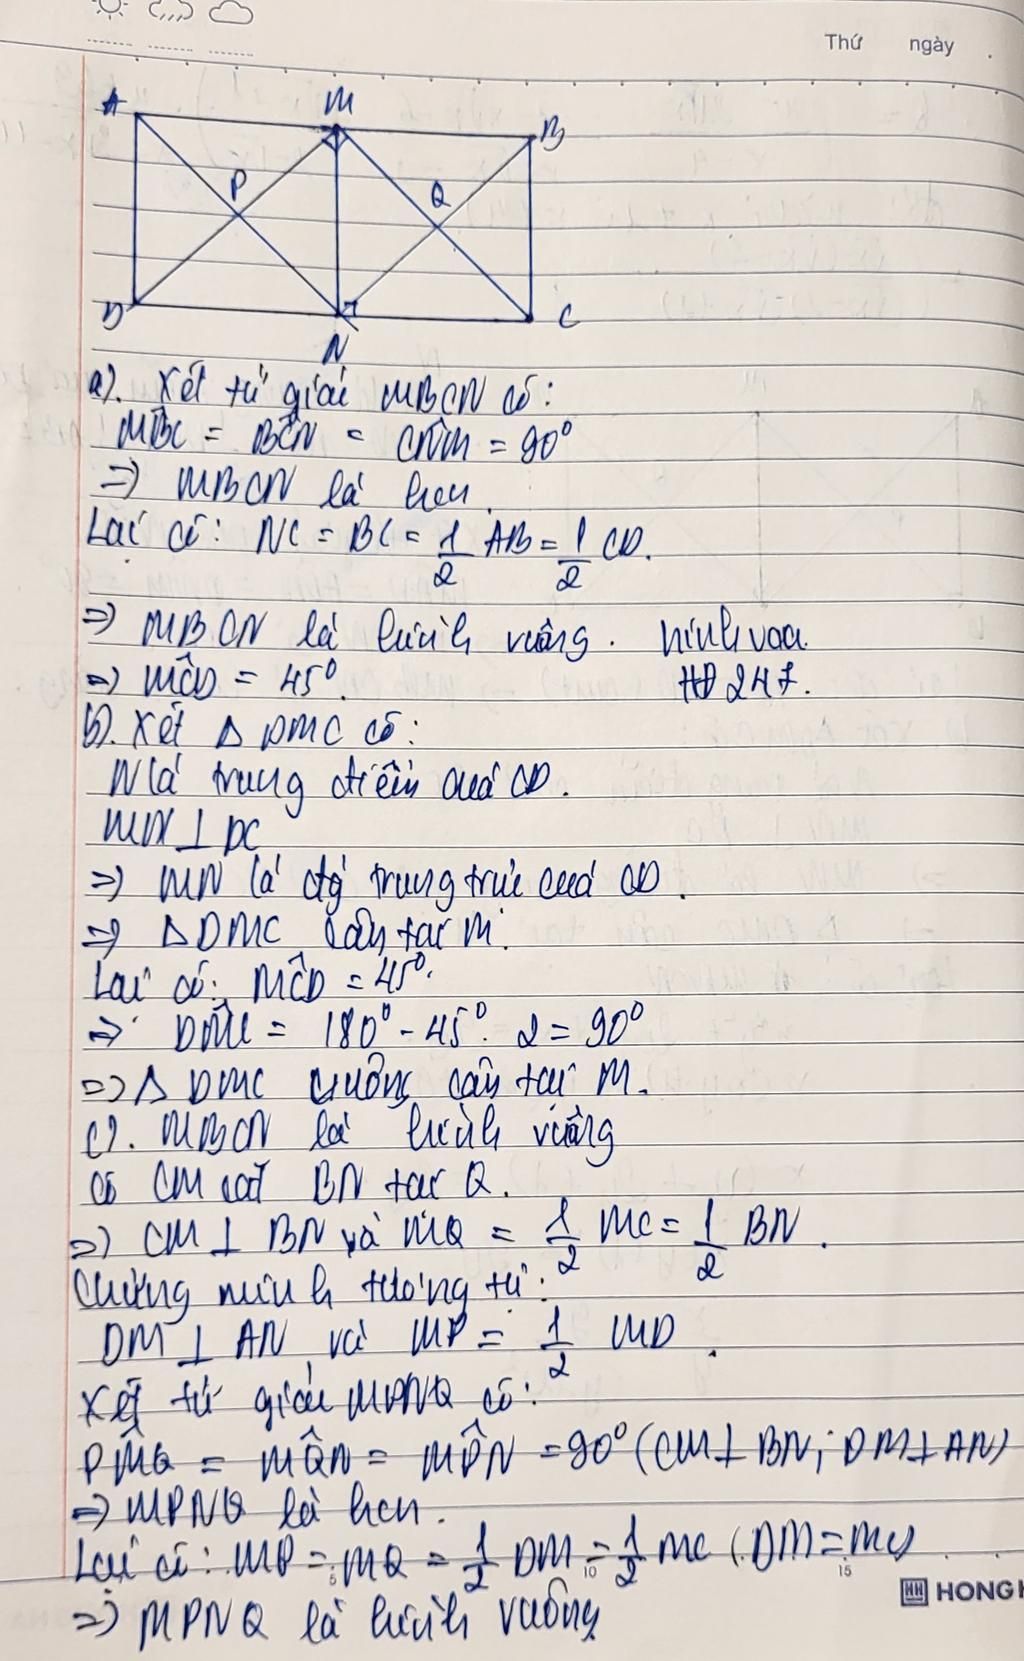 Thứ ngày
A M B
P Q
D N C
a). Xét tứ giác MBCN có:
MB̂C = BĈN = CN̂M = 90°
=> MBCN là hcn.
Lại có: NC = BC = 1/2 AB = 1/2 CD.
=> MBCN là hình vuông. hinhvaa
=> MĈD = 45°. HD247.
b). Xét Δ DMC có:
N là trung điểm của CD.
MN ⊥ DC
=> MN là đg trung trực của CD.
=> Δ DMC cân tại M.
Lại có: MĈD = 45°.
=> DM̂C = 180° - 45°. 2 = 90°
=> Δ DMC vuông cân tại M.
c). MBCN là hình vuông
có CM cắt BN tại Q.
=> CM ⊥ BN và MQ = 1/2 MC = 1/2 BN.
Chứng minh tương tự:
DM ⊥ AN và MP = 1/2 MD.
Xét tứ giác MPNQ có:
PM̂Q = MQ̂N = MP̂N = 90° (CM ⊥ BN; DM ⊥ AN)
=> MPNQ là hcn.
Lại có: MP = MQ = 1/2 DM = 1/2 MC (DM = MC)
5 10 15
=> MPNQ là hình vuông
HH HONG H